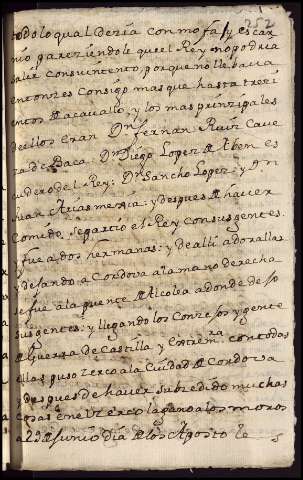 252
todo lo qual dezia con mofa, y escar
nio pareziendole qu el Rey no podria
salir con su intento, porque no llebava
entonzes consigo mas que hasta trezi
entos de acavallo, y los mas prinzipales
dellos eran Dn. fernan Ruiz Cave
za de Baca: Dn. Diego Lopez de
del Rey: Dn. Sancho Lopez: y Dn.
Juan Arias mexia: y despues de haver
Comido, se partio el Rey con sus gentes.
y fue a dos hermanas: y de alli
y dejando a Cordova a la mano derecha
se fue a la puente de Alcolea adonde
sus gentes: y llegando los Conzejos, y gente
de guerra de Castilla y Extremra. con todas
ellas puso zerco a la Ciudad de Cordova
y despues de haver subzedido muchas
cosas en el zerco la gano a los moros
a 29 de Junio dia de los Apostoles